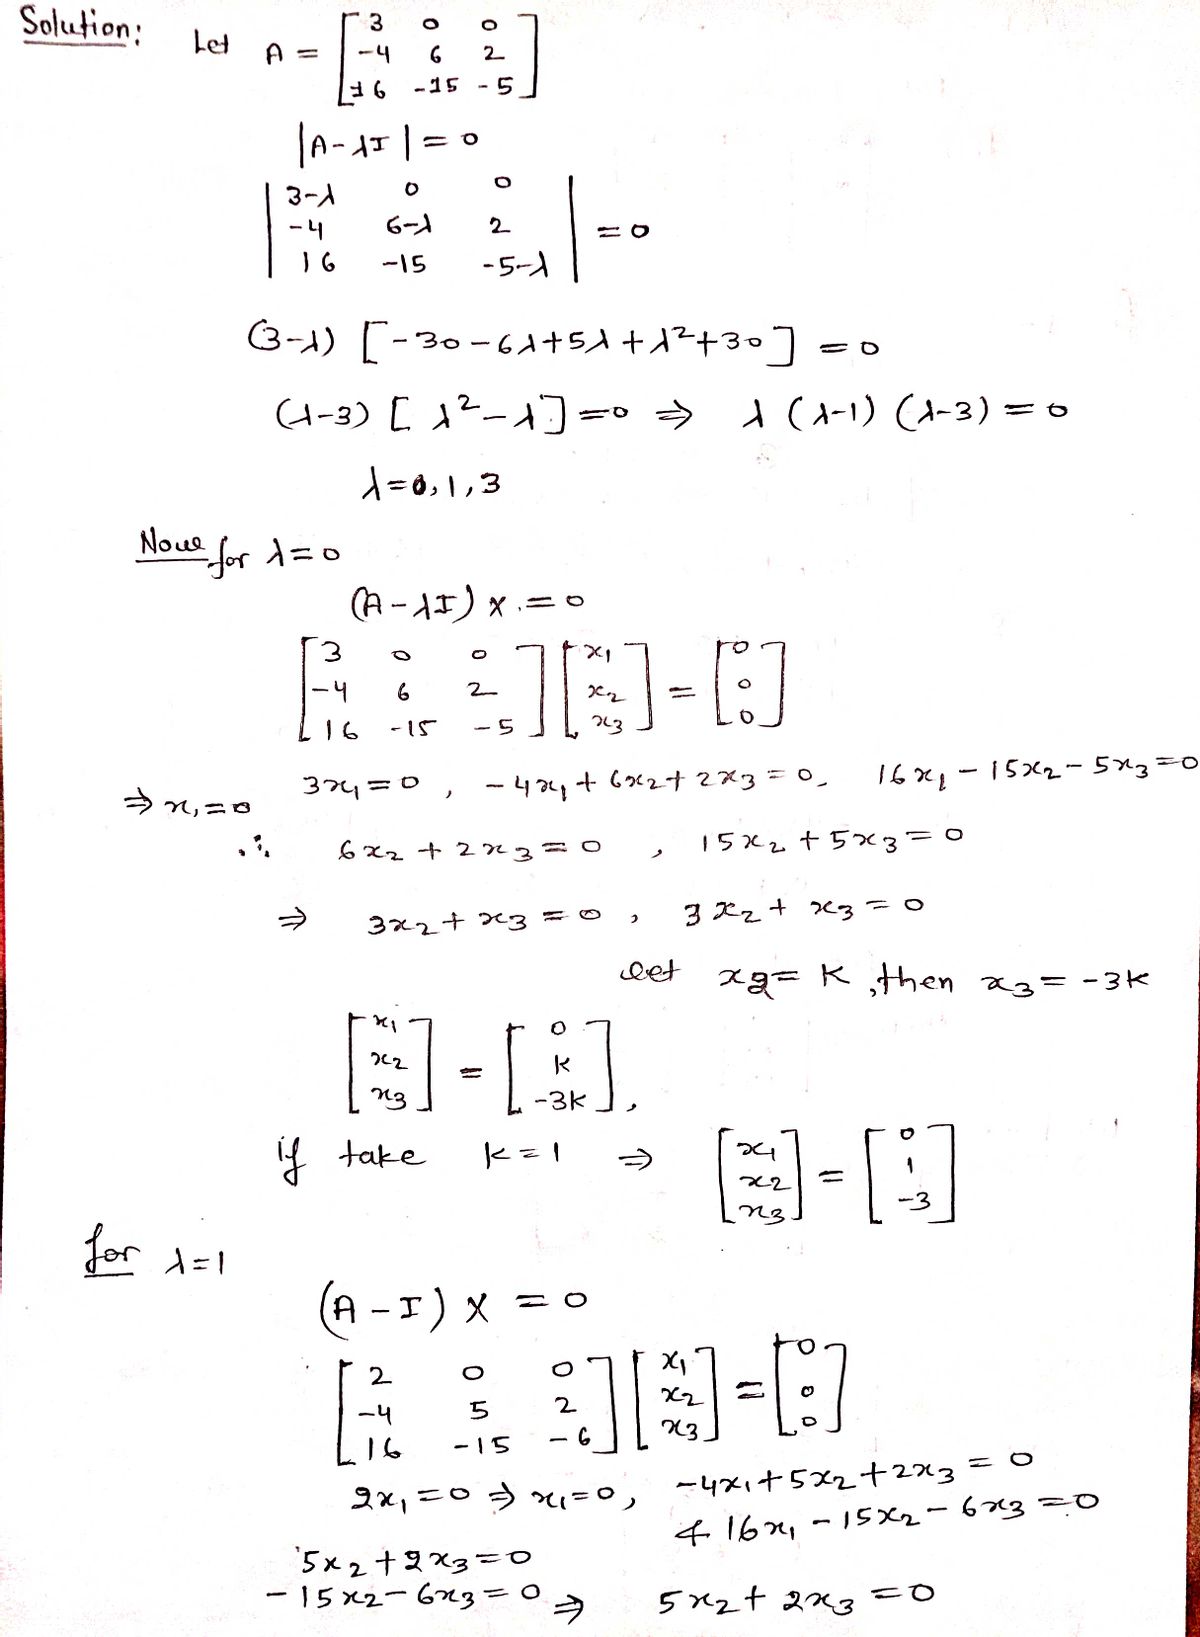 Solution: Let A = [ 3 0 0
-4 6 2
16 -15 -5 ]
|A-λI| = 0
| 3-λ 0 0
-4 6-λ 2
16 -15 -5-λ | = 0
(3-λ) [-30-6λ+5λ+λ²+30] = 0
(λ-3) [λ²-λ] = 0 ⇒ λ(λ-1)(λ-3) = 0
λ=0,1,3
Now for λ=0
(A-λI) X = 0
[ 3 0 0 ] [ x₁ ] = [ 0 ]
[ -4 6 2 ] [ x₂ ] [ 0 ]
[ 16 -15 -5 ] [ x₃ ] [ 0 ]
3x₁=0, -4x₁+6x₂+2x₃=0, 16x₁-15x₂-5x₃=0
⇒ x₁=0
∴ 6x₂+2x₃=0, 15x₂+5x₃=0
⇒ 3x₂+x₃=0, 3x₂+x₃=0
let x₂=k, then x₃=-3k
[ x₁ ] = [ 0 ]
[ x₂ ] [ k ]
[ x₃ ] [ -3k ],
if take k=1 ⇒ [ x₁ ] = [ 0 ]
[ x₂ ] [ 1 ]
[ x₃ ] [ -3 ]
for λ=1
(A-I) X = 0
[ 2 0 0 ] [ x₁ ] = [ 0 ]
[ -4 5 2 ] [ x₂ ] [ 0 ]
[ 16 -15 -6 ] [ x₃ ] [ 0 ]
2x₁=0 ⇒ x₁=0, -4x₁+5x₂+2x₃=0
& 16x₁-15x₂-6x₃=0
5x₂+2x₃=0
-15x₂-6x₃=0 ⇒ 5x₂+2x₃=0